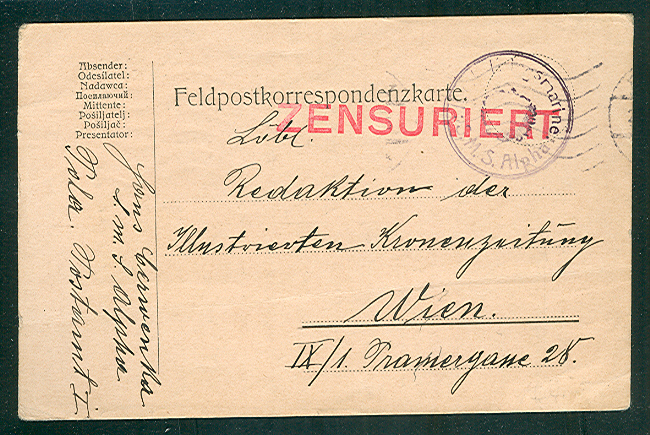 Absender:
Odesílatel:
Nadawca:
Посилаючий:
Mittente:
Pošiljatelj:
Pošiljač:
Presentator:
Feldpostkorrespondenzkarte.
ZENSURIERT
S.M.S. Alpha
Löbl.
Redaktion der
Illustrierten Kronenzeitung
Wien.
IX/1. Pramergasse 28.
Červenka
S. M. S. Alpha
Pola. Postamt I